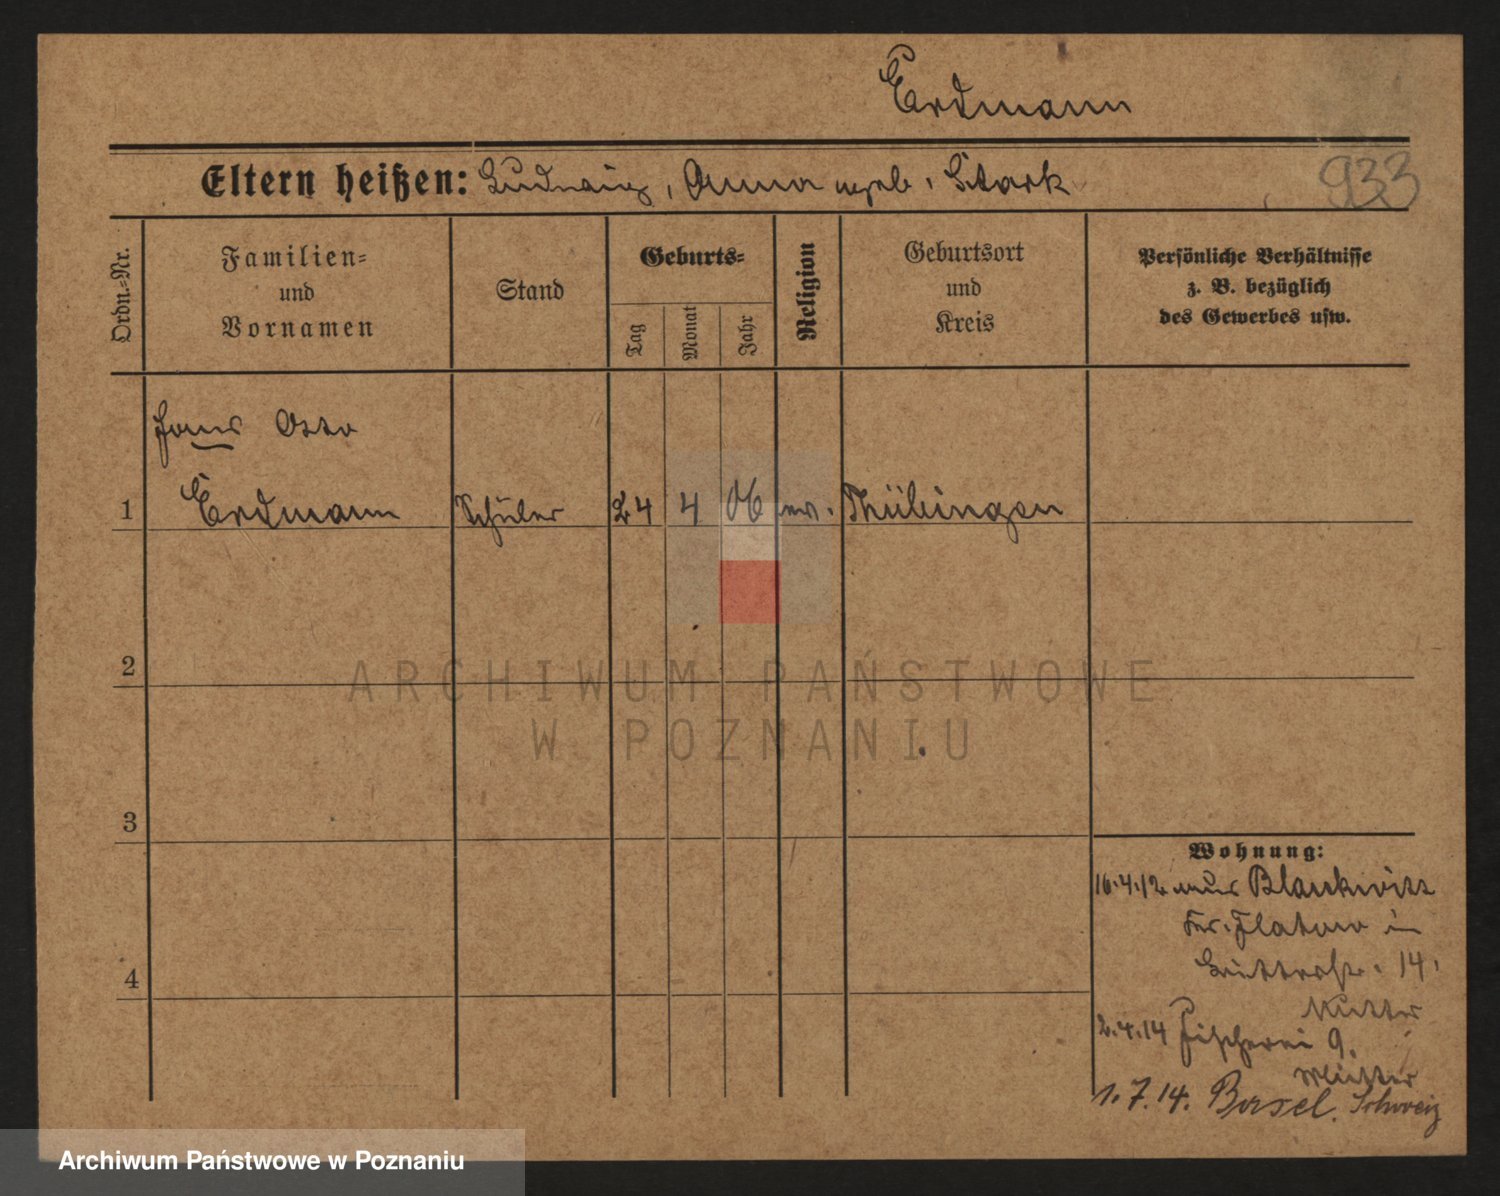 Erdmann
933
Eltern heißen: Ludwig, Anna geb. Stark
Ordn.-Nr.
Familien-
und
Vornamen
Stand
Geburts-
Tag
Monat
Jahr
Religion
Geburtsort
und
Kreis
Persönliche Verhältnisse
z. B. bezüglich
des Gewerbes usw.
Hans Otto
1 Erdmann Schüler 24 4 06 ev. Thübingen
2
3
4
Wohnung:
16.4.12 aus Blankwitt
Kr. Flatow in
14.
Mutter
2.4.14 Fischerei 9.
Mutter
1.7.14. Basel. Schweiz
ARCHIWUM PAŃSTWOWE
W POZNANIU
Archiwum Państwowe w Poznaniu